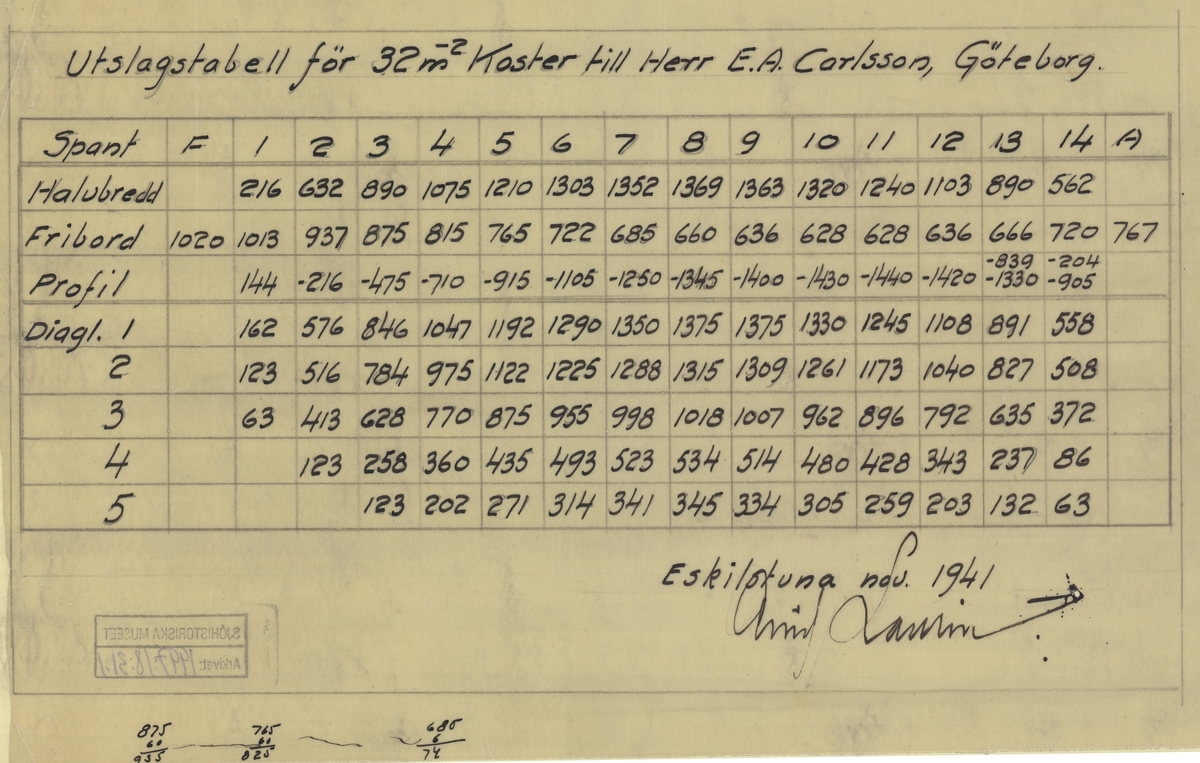 Utslagstabell för 32m⁻² Koster till Herr E.A. Carlsson, Göteborg.
Spant F 1 2 3 4 5 6 7 8 9 10 11 12 13 14 A
Halvbredd 216 632 890 1075 1210 1303 1352 1369 1363 1320 1240 1103 890 562
Fribord 1020 1013 937 875 815 765 722 685 660 636 628 628 636 666 720 767
-839 -204
Profil 144 -216 -475 -710 -915 -1105 -1250 -1345 -1400 -1430 -1440 -1420 -1330 -905
Diagl. 1 162 576 846 1047 1192 1290 1350 1375 1375 1330 1245 1108 891 558
2 123 516 784 975 1122 1225 1288 1315 1309 1261 1173 1040 827 508
3 63 413 628 770 875 955 998 1018 1007 962 896 792 635 372
4 123 258 360 435 493 523 534 514 480 428 343 237 86
5 123 202 271 314 341 345 334 305 259 203 132 63
Eskilstuna nov. 1941
Arvid Laurin
SJÖHISTORISKA MUSEET
Arkivet: 1997:18:31.1
875 765 685
60 60 6
935 825 74